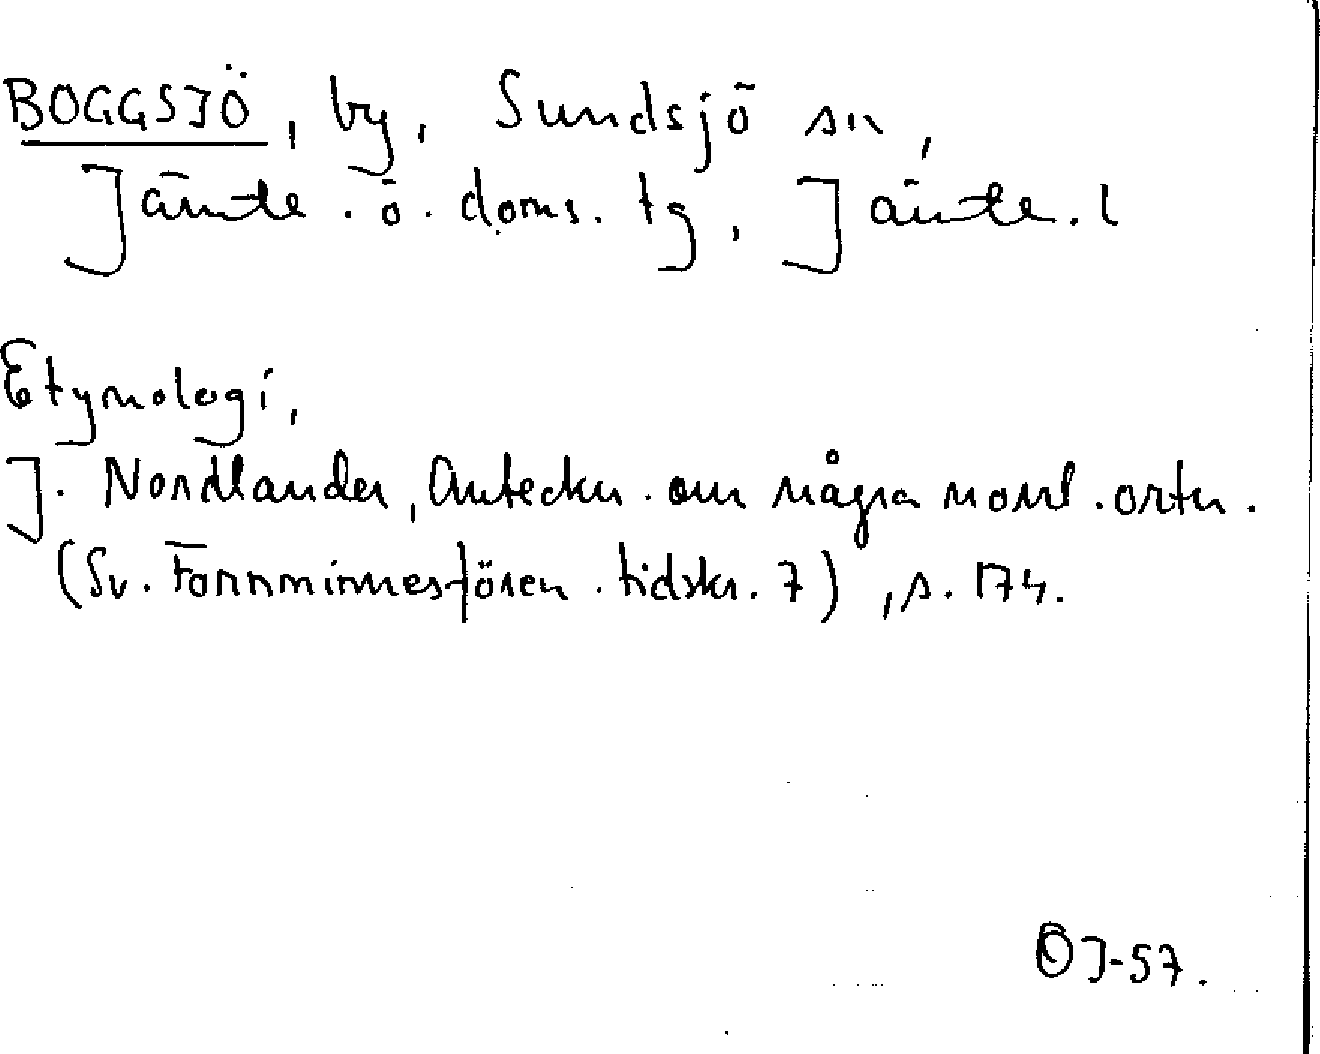 BOGGSJÖ, by, Sundsjö sn,
Jämte. ö. doms. tg, Jämte. l
Etymologi,
J. Nordlander, Anteckn. om några norrl. ortn.
(Sv. Fornminnesfören. tidskr. 7), s. 174.
OJ-57.